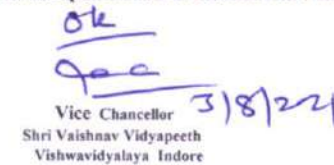 OK
Vice Chancellor 3/8/22
Shri Vaishnav Vidyapeeth
Vishwavidyalaya Indore